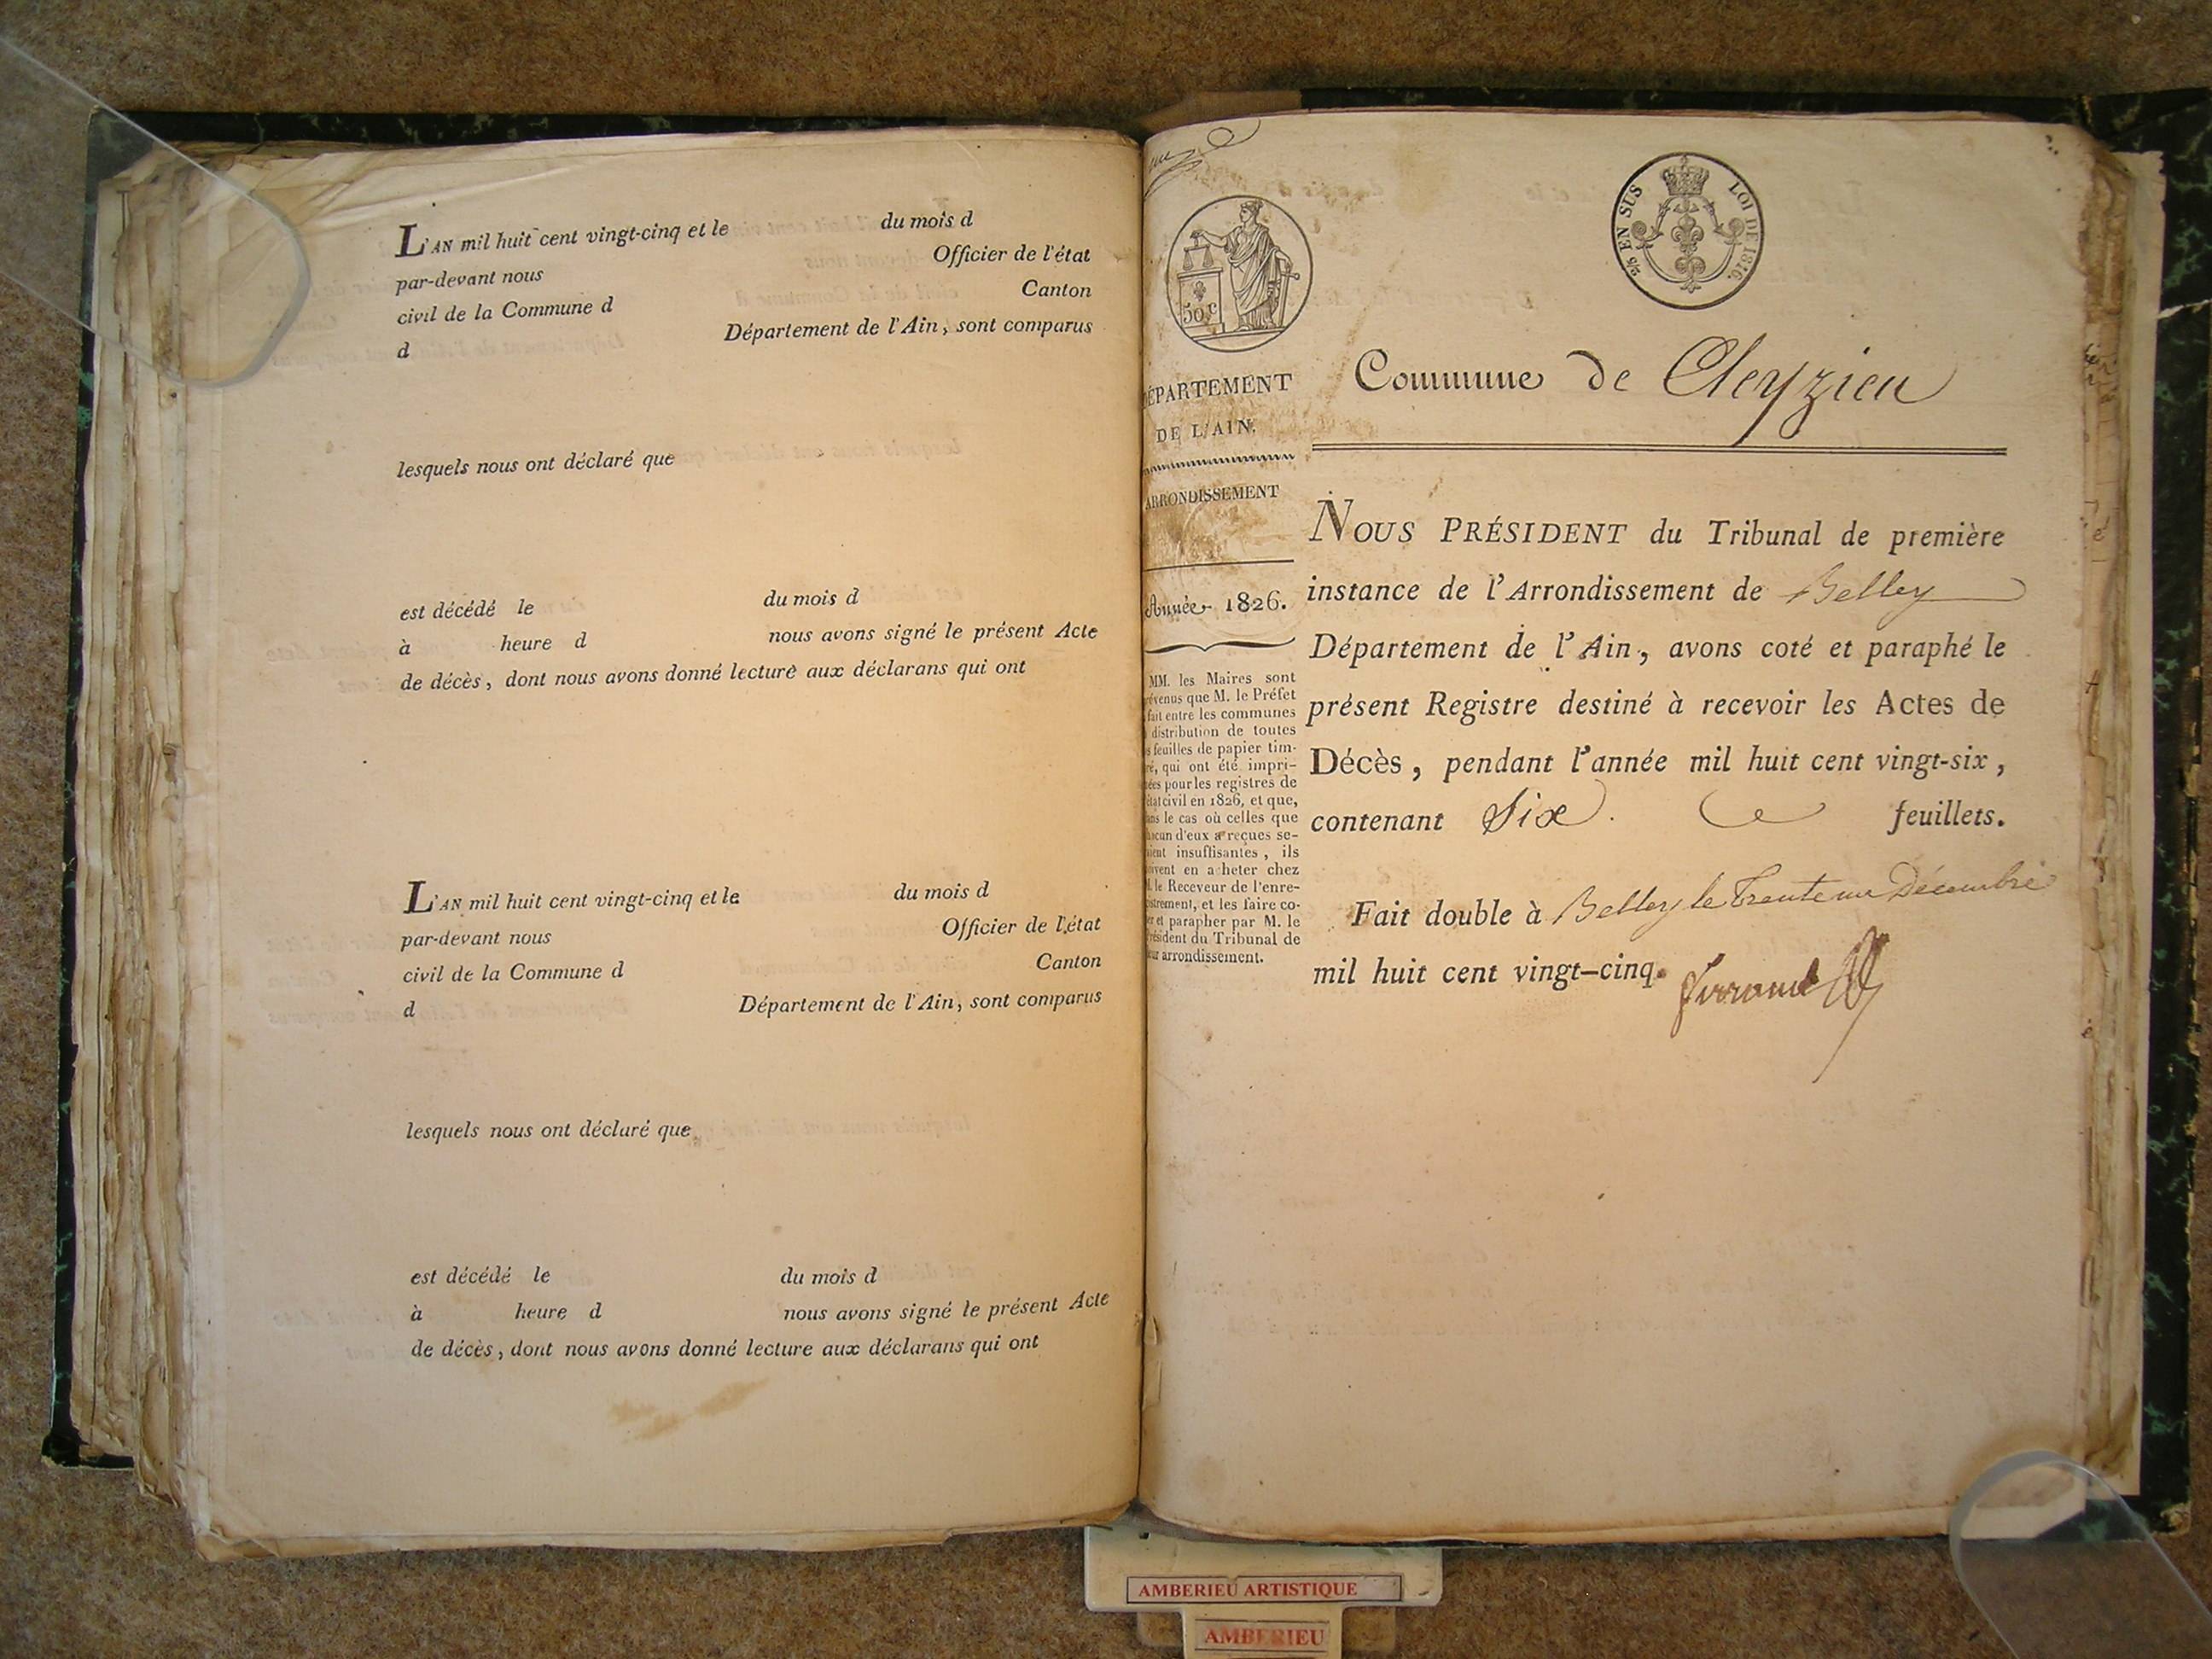 L'AN mil huit cent vingt-cinq et le du mois d
par-devant nous Officier de l'état
civil de la Commune d Canton
d Département de l'Ain, sont comparus
lesquels nous ont déclaré que
est décédé le du mois d
à heure d nous avons signé le présent Acte
de décès, dont nous avons donné lecture aux déclarans qui ont
L'AN mil huit cent vingt-cinq et le du mois d
par-devant nous Officier de l'état
civil de la Commune d Canton
d Département de l'Ain, sont comparus
lesquels nous ont déclaré que
est décédé le du mois d
à heure d nous avons signé le présent Acte
de décès, dont nous avons donné lecture aux déclarans qui ont
50 c
2/5 EN SUS LOI DE 1816.
DÉPARTEMENT
DE L'AIN.
ARRONDISSEMENT
Année 1826.
MM. les Maires sont
prévenus que M. le Préfet
fait entre les communes
distribution de toutes
feuilles de papier tim-
bré, qui ont été impri-
mées pour les registres de
état civil en 1826, et que,
dans le cas où celles que
chacun d'eux a reçues se-
raient insuffisantes, ils
doivent en acheter chez
M. le Receveur de l'enre-
gistrement, et les faire co-
ter et parapher par M. le
Président du Tribunal de
leur arrondissement.
Commune de Cleyzieu
NOUS PRÉSIDENT du Tribunal de première
instance de l'Arrondissement de Belley
Département de l'Ain, avons coté et paraphé le
présent Registre destiné à recevoir les Actes de
Décès, pendant l'année mil huit cent vingt-six,
contenant Six feuillets.
Fait double à Belley le Trente un Décembre
mil huit cent vingt-cinq.
AMBERIEU ARTISTIQUE
AMBERIEU